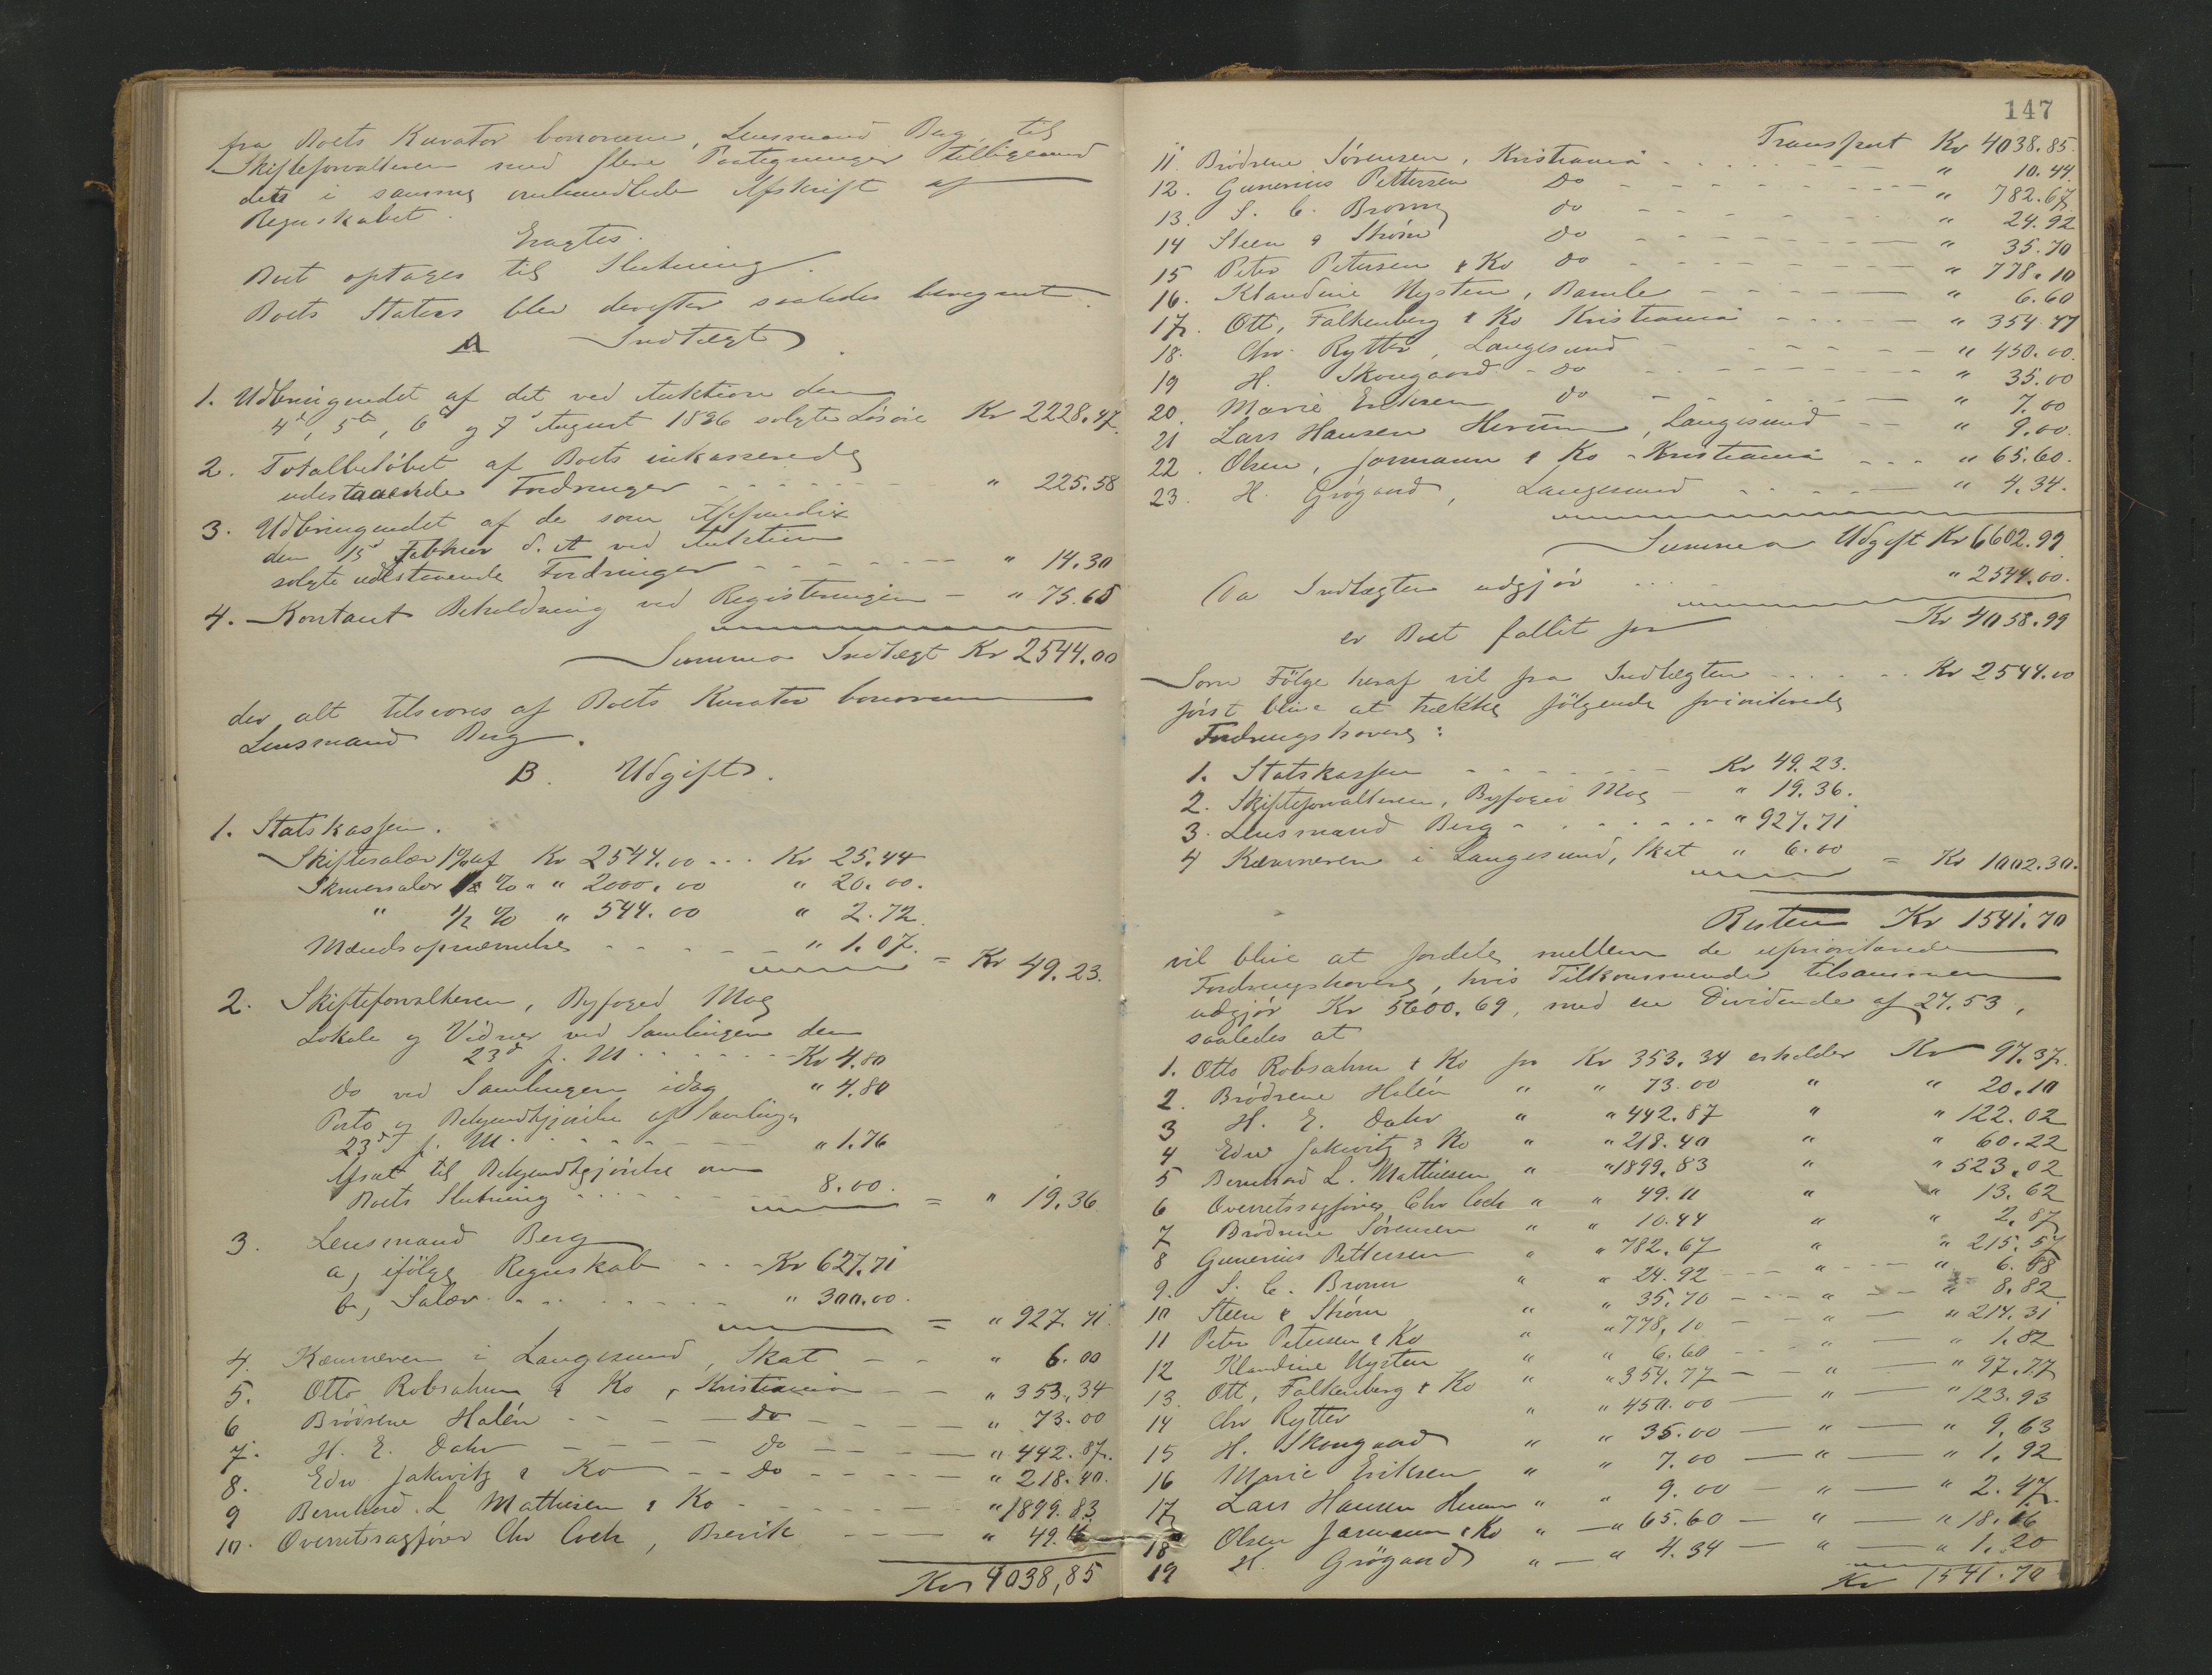 fra Boets Kurator bonorum, Lensmand Berg, til
Skifteforvalteren med flere Paategninger tilligemed
dets i samme omhandlede Afskrift af
Regnskabet.
Eragtes.
Boet optages til Slutning.
Boets Status blev derefter saaledes beregnet.
A Indtægt.
1. Udbringendet af det ved Auktion den
4de, 5te, 6te og 7de August 1896 solgte Løsøre Kr 2228.47.
2. Totalbeløbet af Boets inkasserede
udestaaende Fordringer - - - " 225.58
3. Udbringendet af de som
den 15de Febhuar d. A ved Auktion
solgte udestaaende Fordringer - - - " 14.30
4. Kontant Beholdning ved Registreringen - " 75.65
Summa Indtægt Kr 2544.00
der alt tilsvares af Boets Kurator bonorum
Lensmand Berg.
B. Udgift.
1. Statskassen.
Skiftesalær 1% af Kr 2544.00 ... Kr 25.44
Skriversalær 1 % " " 2000.00 " 20.00.
" 1/2 % " 544.00 " 2.72.
Mændsopnævnelse - - - " 1.07.
= Kr 49.23.
2. Skifteforvalteren, Byfoged Moe
Lokale og Vidner ved Samlingen den
23de f. M. - - - Kr 4.80
do ved Samlingen idag " 4.80
Porto og Bekjendtgjørelse af Samlingen
23de f. M. - - - " 1.76
Afsat til Bekjendtgjørelse om
Boets Slutning - - - 8.00. = " 19.36.
3. Lensmand Berg
a, ifølge Regnskab - - - Kr 627.71
b, Salær - - - " 300.00.
= " 927.71.
4. Kæmneren i Langesund, Skat - - " 6.00
5. Otto Robsahm & Ko, Kristiania - - " 353,34
6 Brødrene Halén - - - do - - - " 73.00
7. H. E. Dahr - - - do - - - " 442.87.
8. Edw. Jakwitz & Ko - - do - - - " 218.40.
9 Bernhard L Mathiesen & Ko - - - " 1899.83
10. Overretssagfører Chr Coch, Brevik - - - " 49.11
Kr 4038,85
147
Transport Kr 4038.85.
11. Brødrene Sørensen, Kristiania - - - " 10.44.
12. Gunerius Pettersen do - - - " 782.67
13. S. C. Bronn do - - - " 24.92
14 Steen & Strøm do - - - " 35.70
15 Peter Petersen & Ko do - - - " 778.10
16. Klaudine Nysten, Bamle - - - " 6.60
17. Ott, Falkenberg & Ko Kristiania - - - " 354.77
18. Chr Rytter, Langesund - - - " 450.00.
19 H. Skougaard - do - - - " 35.00
20. Marie Eriksen do - - - " 7.00
21 Lars Hansen Herum, Langesund - - " 9.00.
22. Olsen, Jarmann & Ko - Kristiania - - - " 65.60.
23. H. Grøgaard, Langesund - - - " 4.34.
Summa Udgift Kr 6602.99
Da Indtægten udgjør ... " 2544.00.
er Boet fallit for Kr 4058.99
Som Følge heraf vil fra Indtægten - - - Kr 2544.00
først blive at trække følgende prioriterede
Fordringshavere:
1. Statskassen - - - Kr 49.23.
2. Skifteforvalteren, Byfoged Moe - " 19.36.
3. Lensmand Berg - - - " 927.71
4 Kæmneren i Langesund, Skat " 6.00
= Kr 1002.30.
Resten Kr 1541.70
vil blive at fordele mellem de uprioriterede
Fordringshavere, hvis Tilkommende tilsammen
udgjør Kr 5600.69, med en Dividende af 27.53,
saaledes at
1. Otto Robsahm & Ko for Kr 353.34 erholder Kr 97.37.
2. Brødrene Halén " " 73.00 " " 20.10
3 H. E. Dahr " " 442.87 " " 122.02
4 Edw Jakwitz & Ko " " 218.40 " " 60.22
5 Bernhard L. Mathiesen " " 1899.83 " " 523.02
6 Overretssagfører Chr Coch " " 49.11 " " 13.62
7 Brødrene Sørensen " " 10.44 " " 2.87
8 Gunerius Pettersen " " 782.67 " " 215.57
9. S. C. Bronn " " 24.92 - - - " - - - " 6.88
10 Steen & Strøm " " 35.70 - - - " - - " 8.82
11 Peter Petersen & Ko " " 778,10 - - " - " 214.31
12 Klaudine Nysten " " 6.60 - - - " - " 1.82
13. Ott, Falkenberg & Ko " " 354.77 - - " - " 97.77
14 Chr Rytter " " 450.00 - " - " 123.93
15 H. Skougaard " " 35.00 - " - " 9.63
16 Marie Eriksen " " 7.00 - " - " 1.92
17 Lars Hansen Herum " " 9.00 - " - " 2.47.
18 Olsen Jarmann & Ko " - " 65.60 - " - " 18.06
19 H. Grøgaard " - " 4.34 - " - " 1.20
Kr 1541.70